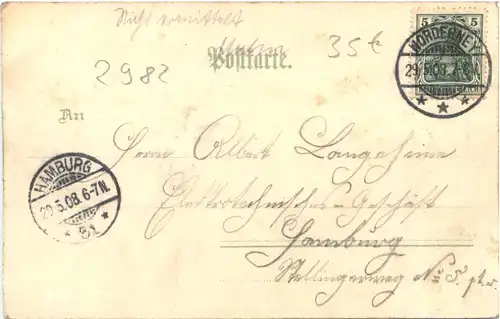 Nicht ermittelt
35 €
2982
Postkarte.
5 5
NORDERNEY
29.5.08.7-8
REICH
An
Herrn Albert Langeheine
Elektrotechnisches - Geschäft
Hamburg
Stellingerweg No 5. pt. r.
HAMBURG
29.5.08.6-7N.
* 51 *